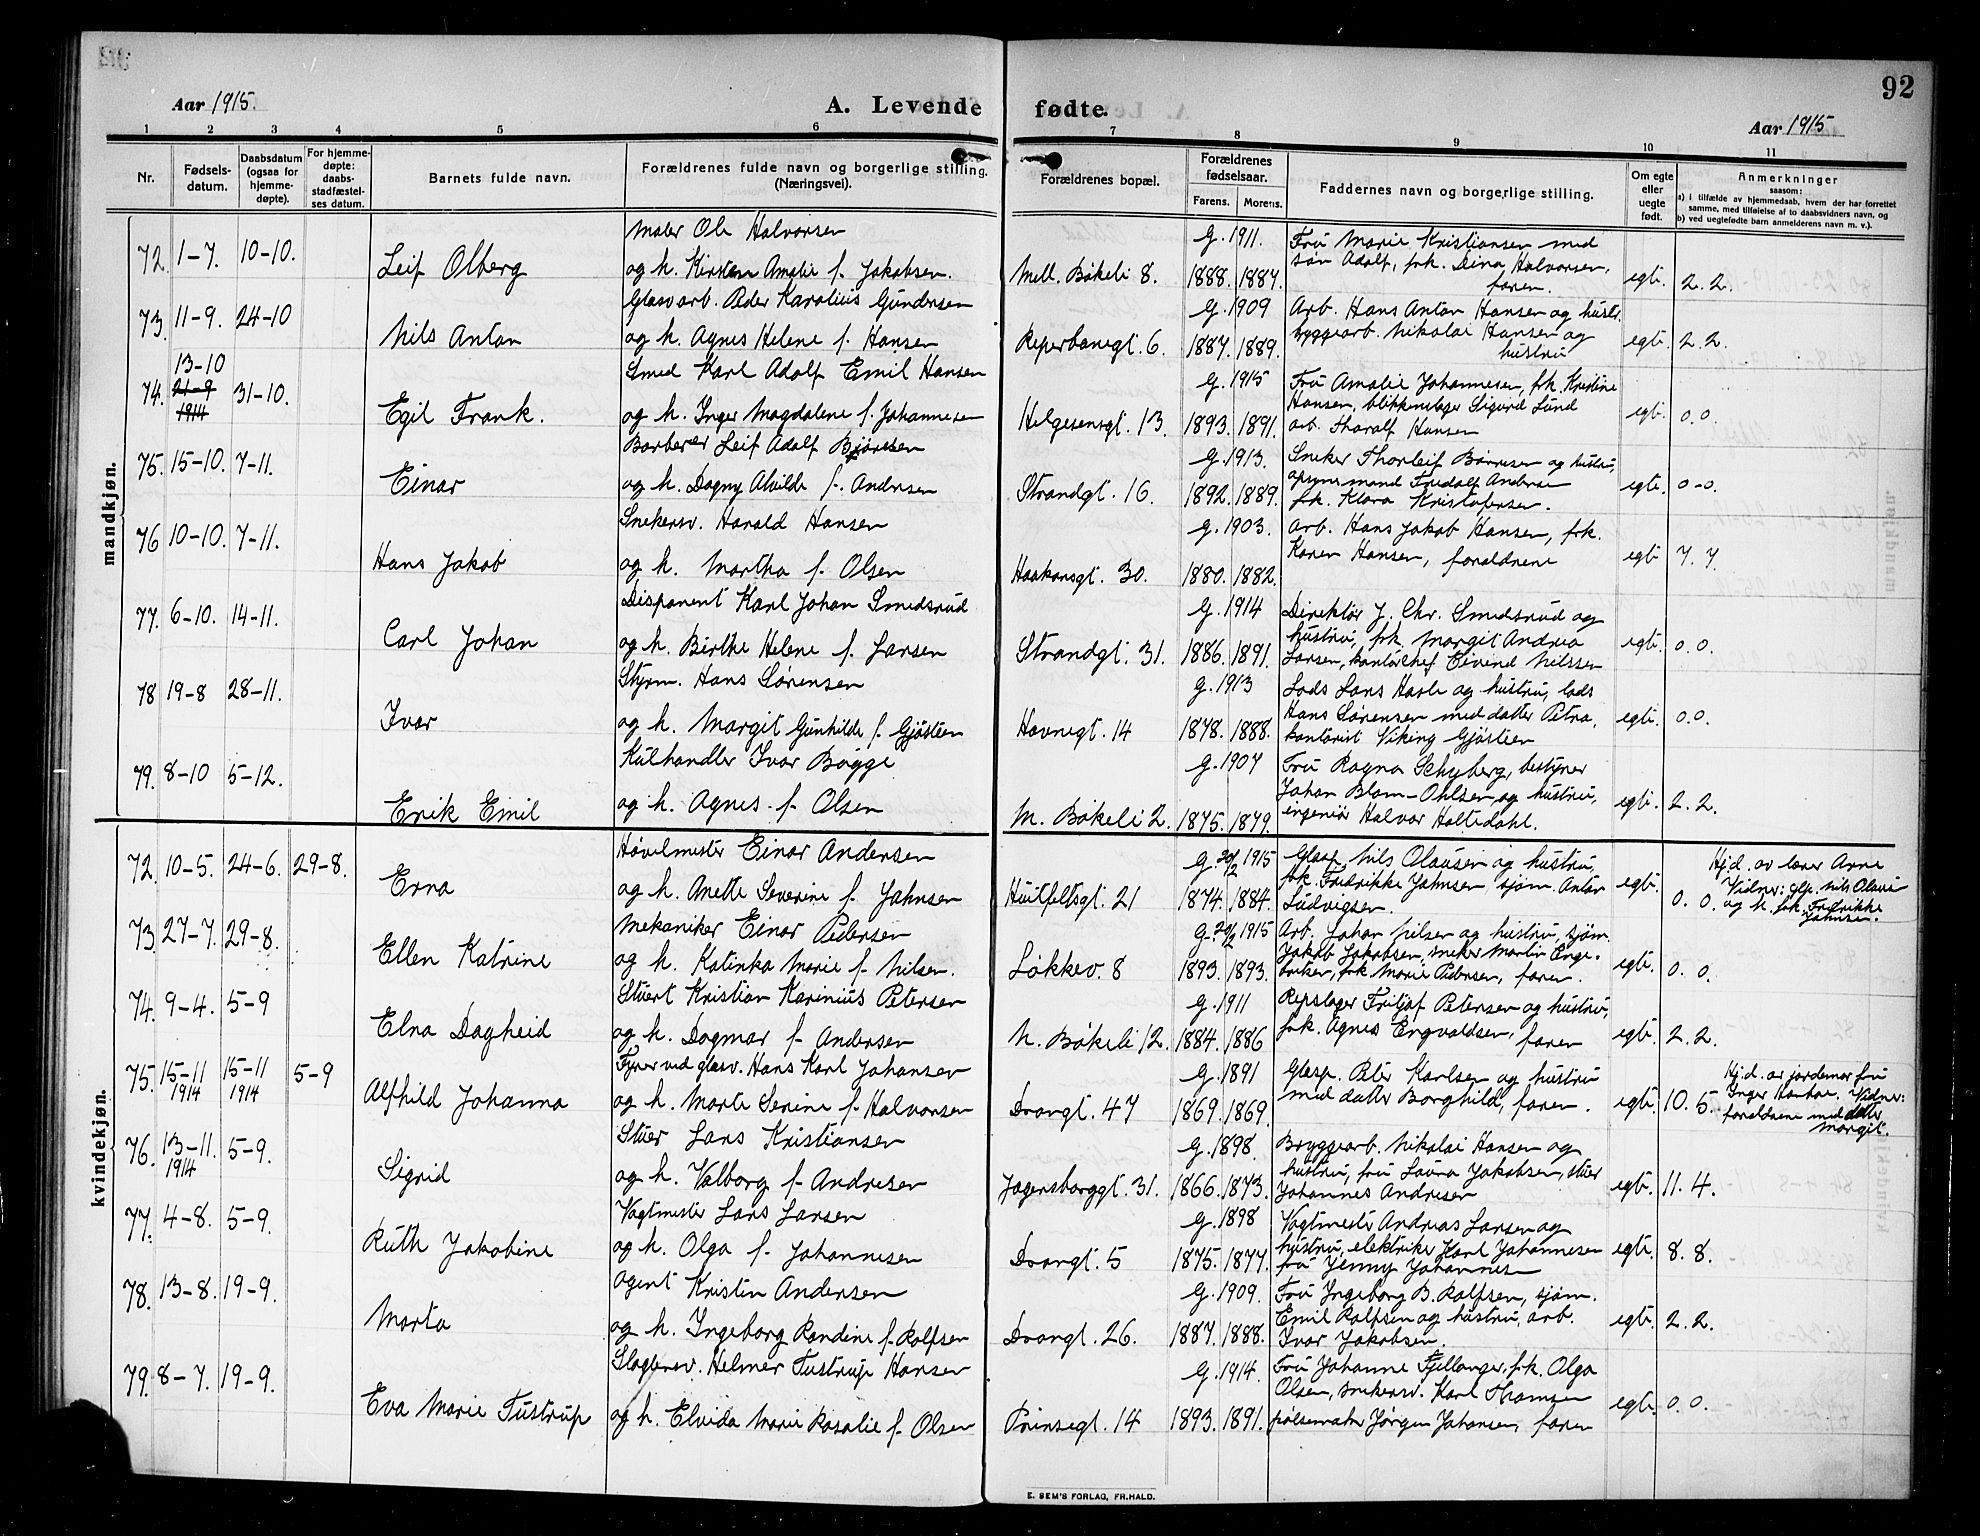 92
Aar 1915.
A. Levende fødte.
Aar 1915
1 2 3 4 5 6 7 8 9 10 11
Nr.
Fødsels-
datum.
Daabsdatum
(ogsaa for
hjemme-
døpte).
For hjemme-
døpte:
daabs-
stadfæstel-
ses datum.
Barnets fulde navn.
Forældrenes fulde navn og borgerlige stilling.
(Næringsvei).
Forældrenes bopæl.
Forældrenes
fødselsaar.
Farens. Morens.
Faddernes navn og borgerlige stilling.
Om egte
eller
uegte
født.
Anmerkninger
saasom:
a) i tilfælde av hjemmedaab, hvem der har forrettet
samme, med tilføielse af to daabsvidners navn, og
b) ved uegtefødte barn anmelderens navn m. v.).
mandkjøn.
72. 1-7. 10-10. Leif Olberg
Maler Ole Halvorsen
og h. Kirsten Amalie f. Jakobsen.
Mell. Bøkeli 8.
g. 1911.
1888. 1887.
Fru Marie Kristiansen med
søn Adolf, frk. Dina Halvorsen,
faren.
egte. 2. 2.
73. 11-9. 24-10 Nils Anton
Glasarb. Peder Karolius Gundersen
og h. Agnes Helene f. Hansen
Reperbanegt. 6.
g. 1909
1887. 1889.
Arb. Hans Anton Hansen og hustr.
byggearb. Nikolai Hansen og
hustru
egte. 2. 2.
74. 13-10
21-9
1914
31-10. Egil Frank.
Smed Karl Adolf Emil Hansen
og h. Inger Magdalene f. Johannesen
Helgesensgt. 13.
g. 1915
1893. 1891.
Fru Amalie Johannesen, frk. Kristine
Hansen, blikkenslager Sigurd Lund
arb. Tharalf Hansen
egte. 0. 0.
75. 15-10. 7-11. Einar
Barberer Leif Adolf
og h. Dagny Alvilde f. Andersen
Strandgt. 16.
g. 1913.
1892. 1889.
Sneker Thorleif Børresen og hustru,
opsynsmand Fredolf Andersen
frk. Klara Kristofersen.
egte. 0-0.
76 10-10. 7-11. Hans Jakob
Snekersv. Harald Hansen
og h. Martha f. Olsen
Haakonsgt. 30.
g. 1903.
1880. 1882.
Arb. Hans Jakob Hansen, frk.
Karen Hansen, forældrene
egte 7. 7.
77. 6-10. 14-11. Carl Johan
Disponent Karl Johan Smedsrud
og h. Birthe Helene f. Larsen
Strandgt. 31.
g. 1914
1886. 1891.
Direktør J. Chr. Smedsrud og
hustru, frk. Margit Andrea
Larsen, kontorchef Eivind Nilssen
egte. 0. 0.
78 19-8 28-11. Ivar
Styrm. Hans Sørensen
og h. Margit Gunhilde f. Gjøstien
Havnegt. 14
g. 1913
1878. 1888.
Lods Lars Hasle og hustru, lods
Hans Sørensen med datter Petra,
kontorist Viking Gjøstien
egte. 0. 0.
79. 8-10 5-12. Erik Emil
Kulhandler Ivar Bogge
og h. Agnes f. Olsen
M. Bøkeli 2.
g. 1907
1875. 1879.
Fru Ragna Schyberg, bestyrer
Johan Blom-Ohlsen og hustru,
ingeniør Halvor Holtedahl.
egte. 2. 2.
kvindekjøn.
72. 10-5. 24-6. 29-8. Erna
Høvelmester Einar Andersen
og h. Anette Severine f. Jahnsen
Huitfeltsgt. 21
g. 20/2 1915
1874. 1884.
Glasp. Nils Olausen og hustru,
frk. Fredrikke Jahnsen, sjøm. Anton
Ludvigsen.
egte. 0. 0.
Hj.d. av lærer Arne
Vidner: glp. Nils Olausen
og h. frk. Fredrikke
Jahnsen.
73. 27-7. 29-8. Ellen Katrine
Mekaniker Einar Pedersen
og h. Katinka Marie f. Nilsen.
Løkkev. 8
g. 20/2 1915
1893. 1893.
Arb. Johan Nilsen og hustru, sjøm.
Jakob Jakobsen, sneker Martin Enge-
bretsen, frk. Marie Pedersen, faren.
egte. 0. 0.
74. 9-4. 5-9 Elna Dagheid
Stuert Kristian Karinius Petersen
og h. Dagmar f. Andersen
N. Bøkeli 12.
g. 1911
1884. 1886
Repslager Fritjof Petersen og hustru,
frk. Agnes Engvaldsen, faren
egte. 2. 2.
75. 15-11
1914
15-11
1914
5-9 Alfhild Johanna
Fyrer ved glasv. Hans Karl Johansen
og h. Marte Serine f. Halvorsen
Drangt. 47
g. 1891
1869. 1869.
Glasp. Peder Karlsen og hustru
med datter Borghild, faren.
egte. 10. 5.
Hj.d. av jordemor fru
Inger Vidner:
forældrene med datter
Margit.
76. 13-11.
1914
5-9. Sigrid
Stuer Lars Kristiansen
og h. Valborg f. Andresen
Jegersborggt. 31.
g. 1898.
1866. 1873.
Bryggearb. Nikolai Hansen og
hustru, fru Laura Jakobsen, stuer
Johannes Andresen
egte. 11. 4.
77. 4-8. 5-9. Ruth Jakobine
Vagtmester Lars Larsen
og h. Olga f. Johannesen
Drangt. 5
g. 1898
1875. 1877.
Vagtmester Andreas Larsen og
hustru, elektriker Karl Johannesen
fru Jenny Johannes
egte. 8. 8.
78. 13-8. 19-9. Marta
Agent Kristen Andersen
og h. Ingeborg Randine f. Rolfsen
Drangt. 26.
g. 1909.
1887. 1888.
Fru Ingeborg B. Rolfsen, sjøm.
Emil Rolfsen og hustru, arb.
Ivar Jakobsen.
egte. 2. 2.
79. 8-7. 19-9. Eva Marie Tustrup
Slagtersv. Helmer Tustrup Hansen
og h. Elvida Marie Rosalie f. Olsen
Prinsegt. 14
g. 1914.
1893. 1891.
Fru Johanne Fjellanger, frk. Olga
Olsen, snekersv. Karl Thomsen
pølsemaker Jørgen Johansen, faren
egte. 0. 0.
E. SEM'S FORLAG, FR.HALD.